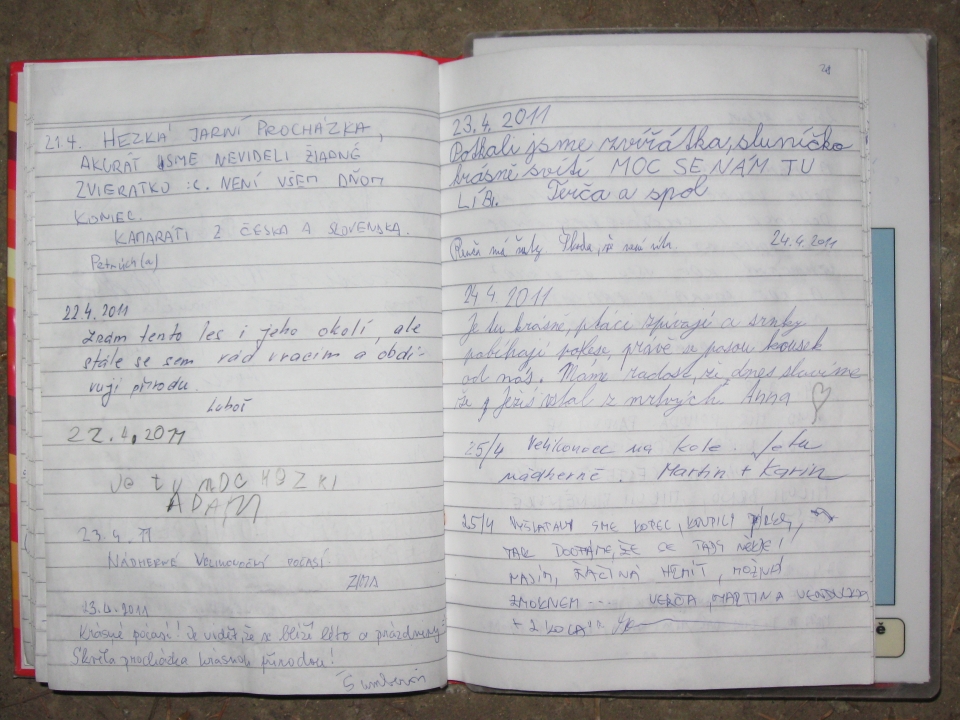 21.4. HEZKÁ JARNÍ PROCHÁZKA,
AKURÁT JSME NEVIDELI ŽIADNÉ
ZVIERATKO :C. NENÍ VŠEM DŇOM
KONIEC.
KAMARÁTI Z ČESKA A SLOVENSKA.
22.4.2011
Znám tento les i jeho okolí, ale
stále se sem rád vracím a obdi-
vuji přírodu.
Luboš
22.4.2011
Je tu MOC HEZKI
ADAM
23.4.11
NÁDHERNÉ VELIKONOČNÍ POČASÍ.
ZIMA
23.4.2011
Krásné počasí! Je vidět, že se blíží léto a prázdniny.
Skvělá procházka krásnou přírodou!
21
23.4.2011
Potkali jsme zvířátka, sluníčko
krásně svítí MOC SE NÁM TU
LÍBí. Terča a spol
má Škoda, že není 24.4.2011
24.4.2011
Je tu krásně, ptáci zpívají a srnky
pobíhají po lese, právě se pasou kousek
od nás. Máme radost, že dnes slavíme
že Ježíš vstal z mrtvých Anna
25/4 Velikonoce na kole. Je tu
nádherně. Martin + Karin
25/4 SME KOTEC,
TAK DOUFÁME, ŽE SE TADY NĚKDE!
MUSÍM, ZAČÍNÁ HŘMÍT, MOŽNÁ
ZMOKNEM .... VERČA, MARTIN A VERUNKA
+ 2 KOLA
ě